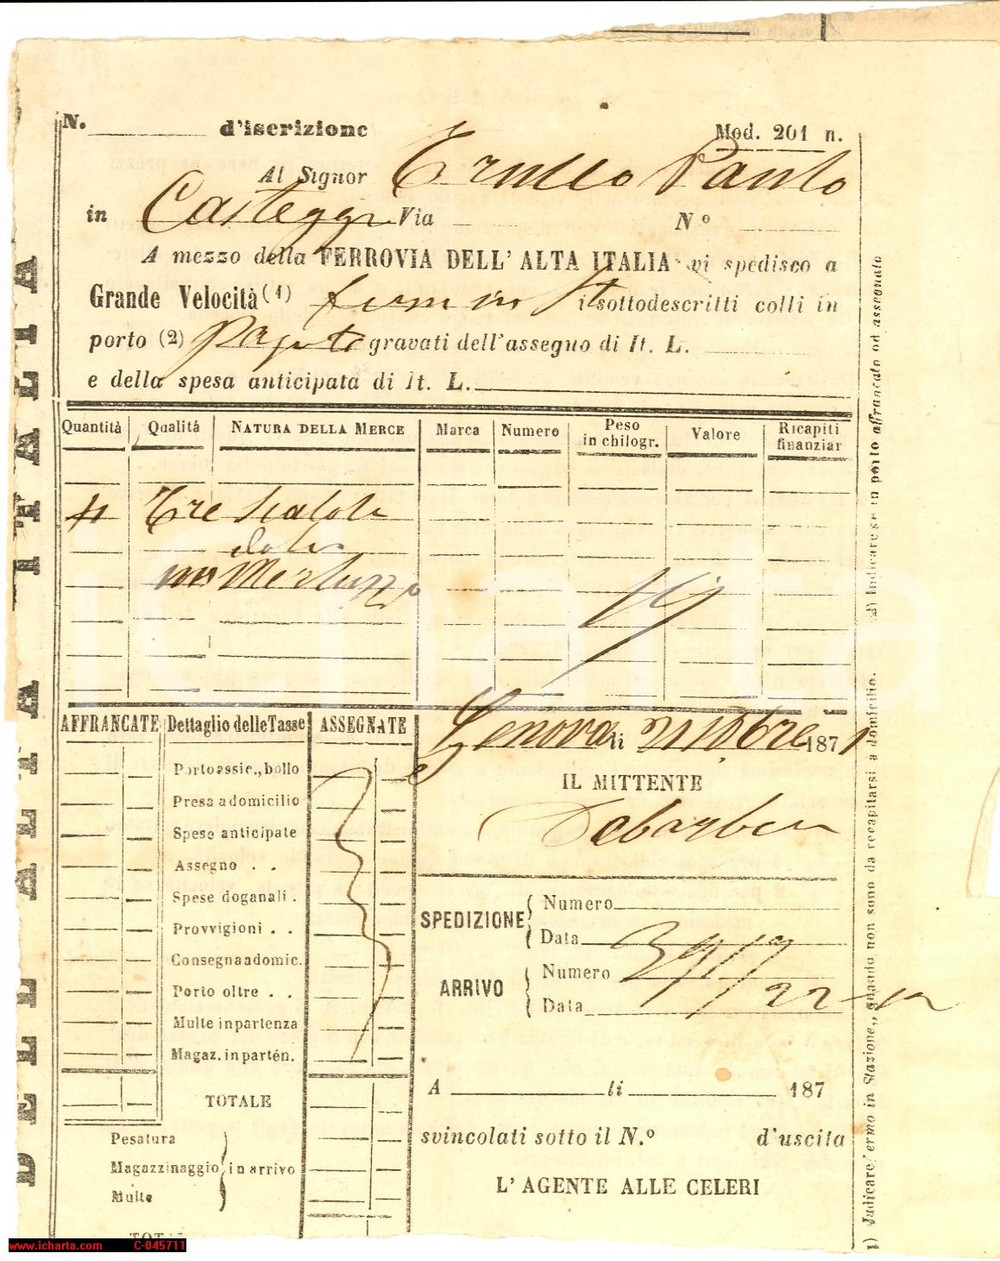 N. d'iscrizione
Mod. 201 n.
Al Signor Paulo
in Casteggi Via N°
A mezzo della FERROVIA DELL' ALTA ITALIA vi spedisco a
Grande Velocità (1) i sottodescritti colli in
porto (2) gravati dell'assegno di It. L.
e della spesa anticipata di It. L.
Quantità Qualitá NATURA DELLA MERCE Marca Numero Peso in chilogr. Valore Ricapiti finanziar
Tre Scatole
AFFRANCATE Dettaglio delle Tasse ASSEGNATE
Porto assic., bollo
Presa a domicilio
Spese anticipate
Assegno . .
Spese doganali .
Provvigioni . .
Consegna a domic.
Porto oltre . .
Multe in partenza
Magaz. in partén.
TOTALE
Pesatura
Magazzinaggio in arrivo
Multe
TOTAL
Genova li 21 10bre 1871
IL MITTENTE
SPEDIZIONE Numero
Data
ARRIVO Numero
Data 22
A li 187
svincolati sotto il N.° d'uscita
L' AGENTE ALLE CELERI
DELL' ALTA ITALIA
1) Indicare fermo in Stazione, quando non sono da recapitarsi a domicilio. 2) Indicare se in porto affrancato od assegnato
ic harta
www.icharta.com C-045711